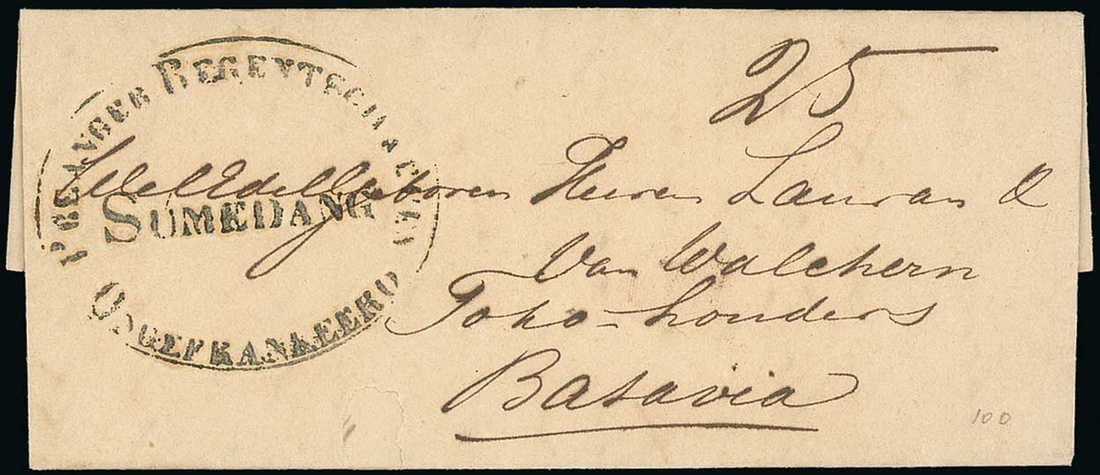 25
PREANGER REGENTSCHAPPEN
WelEdelGeboren Heeren Lauran &
SUMEDANG
Van Walchern
Toko-houders
ONGEFRANKEERD
Batavia
100